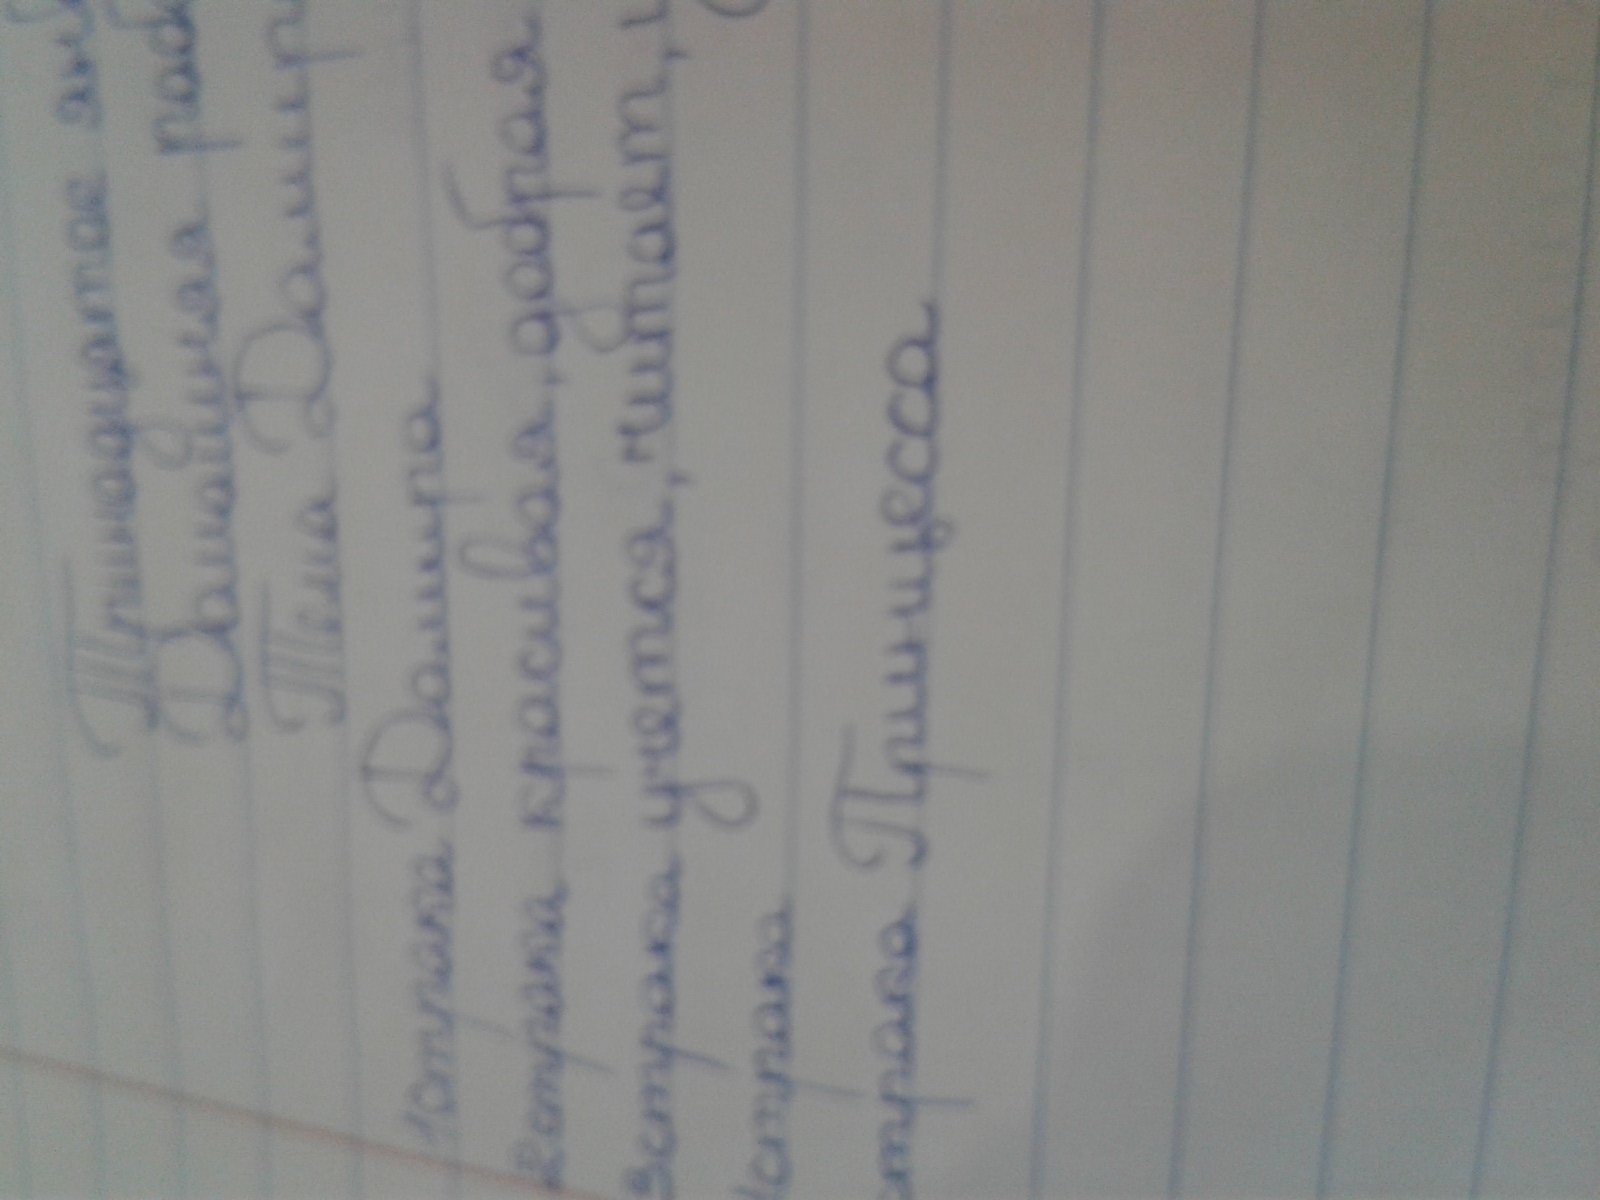 Тринадцатое янв
Домашняя раб
Тема Дамир
1строка Дамира
2строка красивая, добрая
3строка учется, читает, и
4строка
строка Принцесса